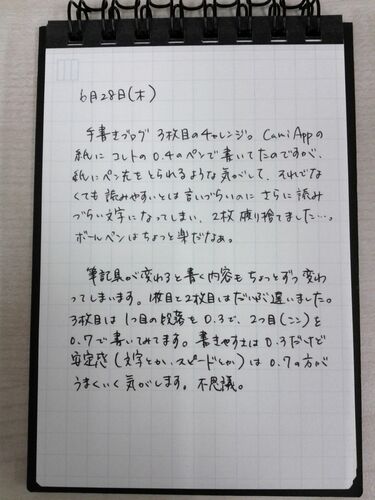 6月28日(木)
手書きブログ 3枚目のチャレンジ。CamiAppの
紙に コレトの0.4のペンで書いてたのですが、
紙にペン先をとられるような気がして、それでなく
ても読みやすいとは言いづらいのに さらに読み
づらい文字になってしまい、2枚破り捨てました…。
ボールペンはちょっと楽だなぁ。
筆記具が変わると書く内容もちょっとずつ変わ
ってしまいます。1枚目と2枚目はだいぶ違いました。
3枚目は1つ目の段落を0.3で、2つ目(ここ)を
0.7で書いてみてます。書きやすさは0.3だけど
安定感(文字とか、スピードとか)は0.7の方が
うまくいく気がします。不思議。